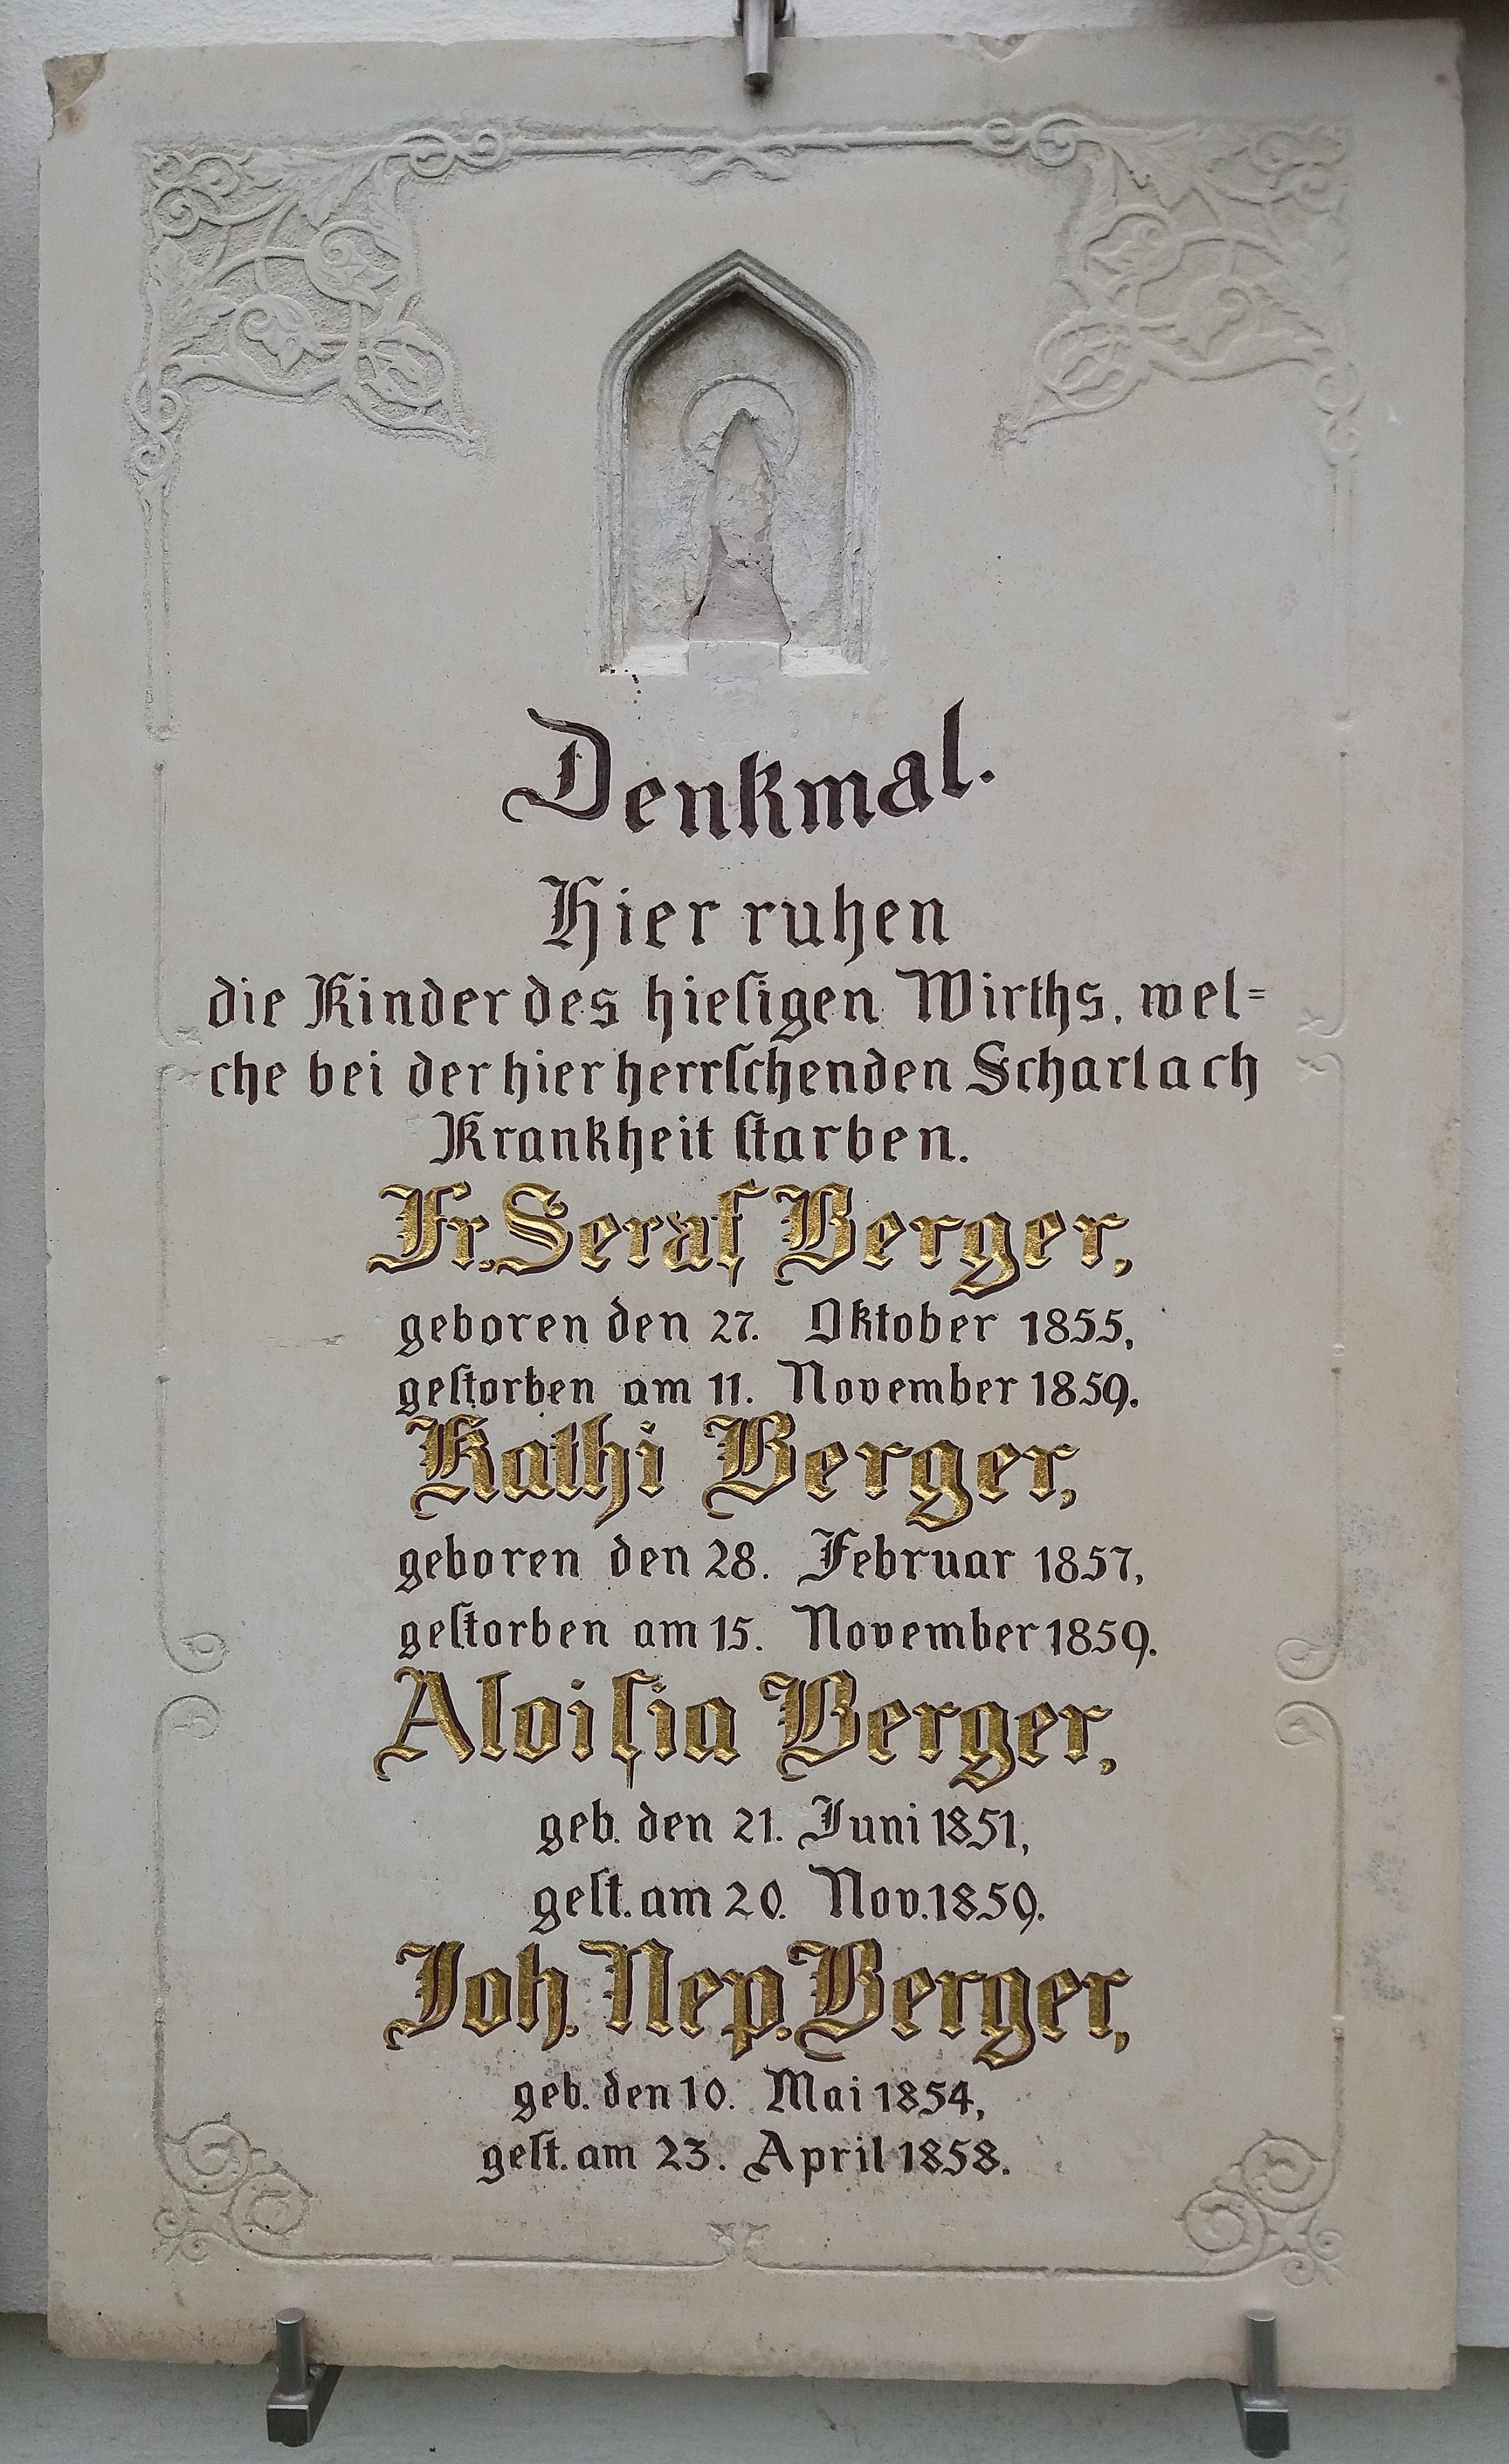 Denkmal.
Hier ruhen
die Kinder des hieſigen Wirths, wel=
che bei der hier herrſchenden Scharlach
Krankheit ſtarben.
Fr. Seraf Berger,
geboren den 27. Oktober 1855,
geſtorben am 11. November 1859.
Kathi Berger,
geboren den 28. Februar 1857,
geſtorben am 15. November 1859.
Aloiſia Berger,
geb. den 21. Juni 1851,
geſt. am 20. Nov. 1859.
Joh. Nep. Berger,
geb. den 10. Mai 1854,
geſt. am 23. April 1858.